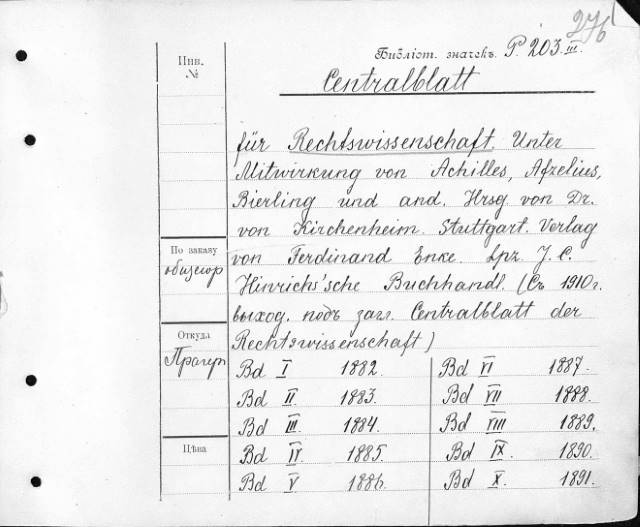 276
Инв.
№
Библіот. значекъ. P. 203. III.
Centralblatt
für Rechtswissenschaft. Unter
Mitwirkung von Achilles, Afzelius,
Bierling und and. Hrsg. von Dr.
von Kirchenheim. Stuttgart. Verlag
von Ferdinand Enke. Lpz. J. C.
Hinrichs'sche Buchhandl. (Съ 1910 г.
выход. подъ загл. Centralblatt der
Rechtswissenschaft)
По заказу
Откуда
Прагеръ
Цѣна
Bd I 1882. Bd VI 1887.
Bd II 1883. Bd VII 1888.
Bd III. 1884. Bd VIII 1889.
Bd IV 1885. Bd IX. 1890.
Bd V 1886. Bd X. 1891.